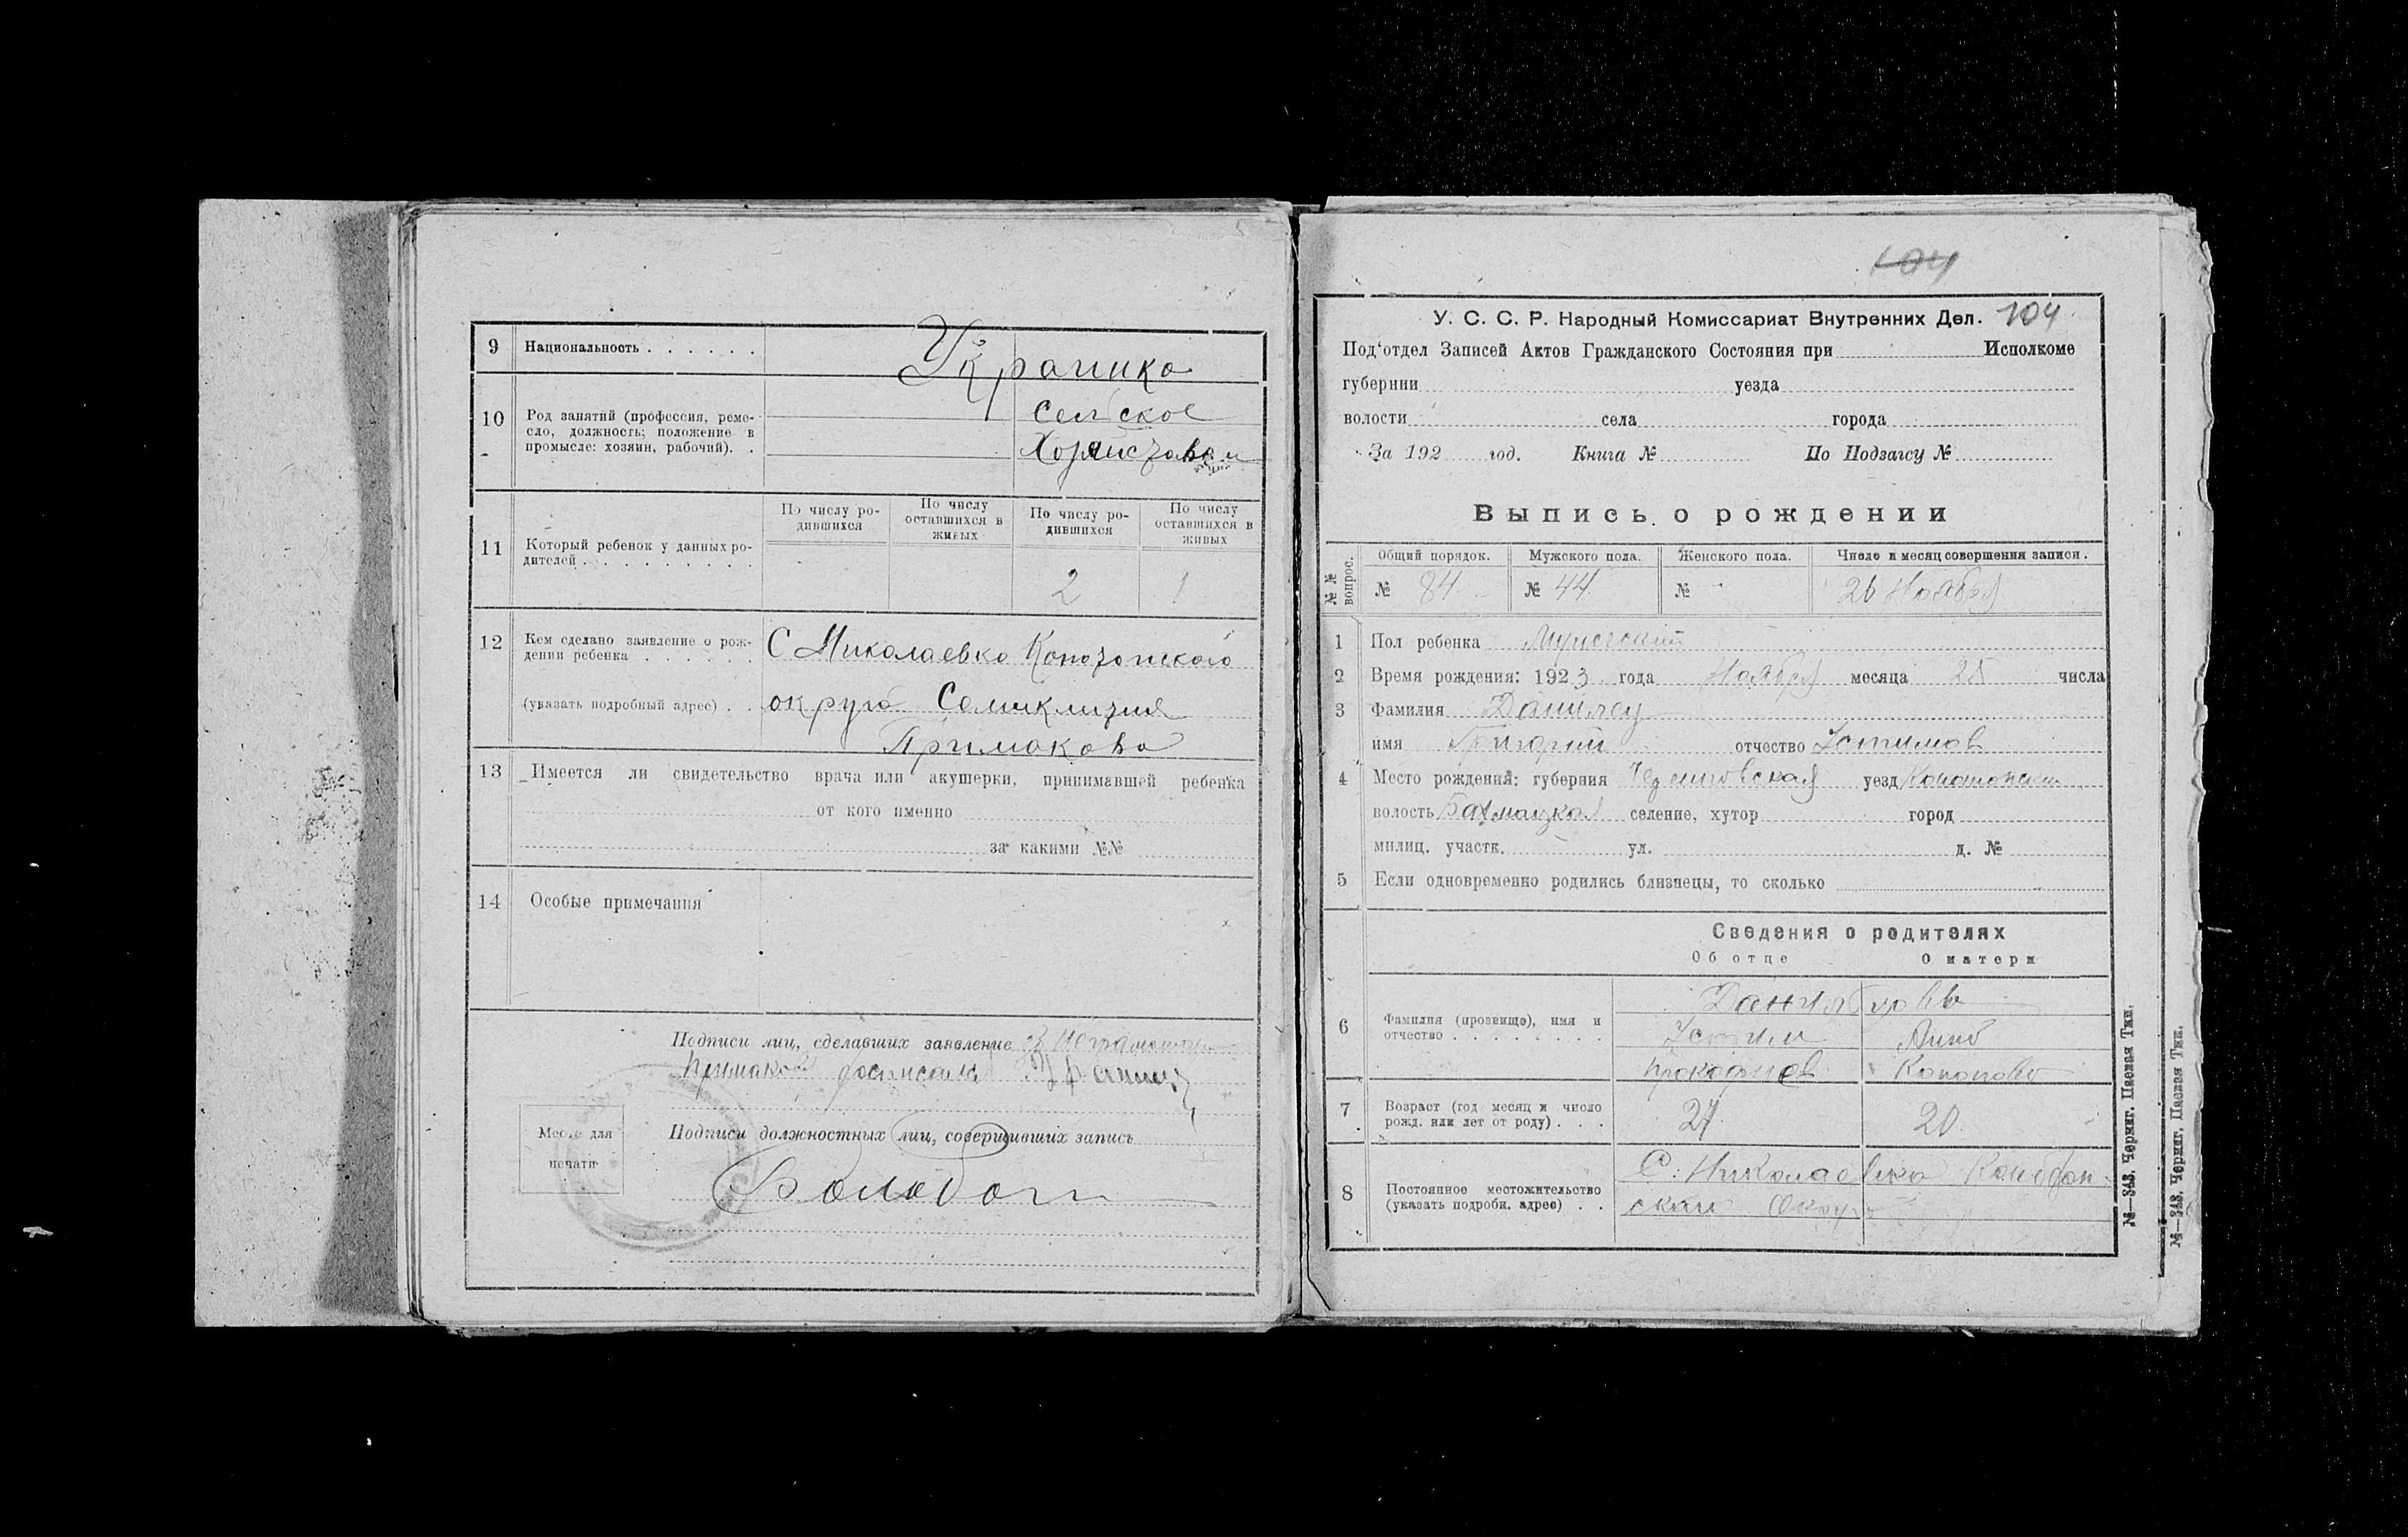 9 Национальность . . . . . . Украинка
10 Род занятий (профессия, реме-
сло, должность; положение в
промысле: хозяин, рабочий). .
Сельское
11 Который ребенок у данных ро-
дителей . . . . . . . . . .
По числу ро-
дившихся
По числу
оставшихся в
живых
По числу ро-
дившихся
По числу
оставшихся в
живых
2 1
12 Кем сделано заявление о рож-
дении ребенка . . . . . . С Николаевка Конотопского
(указать подробный адрес) . . округа
Примакова
13 Имеется ли свидетельство врача или акушерки, принимавшей ребенка
от кого именно
за какими №№
14 Особые примечания
Подписи лиц, сделавших заявление
Подписи должностных лиц, совершивших запись
Место для
печати
104
У. С. С. Р. Народный Комиссариат Внутренних Дел. 104
Под‘отдел Записей Актов Гражданского Состояния при Исполкоме
губернии уезда
волости села города
За 192 год. Книга № По Подзагсу №
Выпись о рождении
№ № вопрос.
Общий порядок. Мужского пола. Женского пола. Число и месяц совершения записи.
№ 84 № 44 № 26 Ноября
1 Пол ребенка Мужской
2 Время рождения: 1923 года Ноября месяца 25 числа
3 Фамилия Данилец
имя Григорий отчество Устимов
4 Место рождения: губерния Черниговская уезд Конотопский
волость Бахмацкая селение, хутор город
милиц. участк. ул. д. №
5 Если одновременно родились близнецы, то сколько
Сведения о родителях
Об отце О матери
6 Фамилия (прозвище), имя и
отчество . . . . . . . .
Устим Анна
Прокофиев
7 Возраст (год месяц и число
рожд. или лет от роду) . . .
27 20
8 Постоянное местожительство
(указать подробн. адрес) . .
С. Николаевка
№—348. Черниг. Паевая Тип.
№—348. Черниг. Паевая Тип.